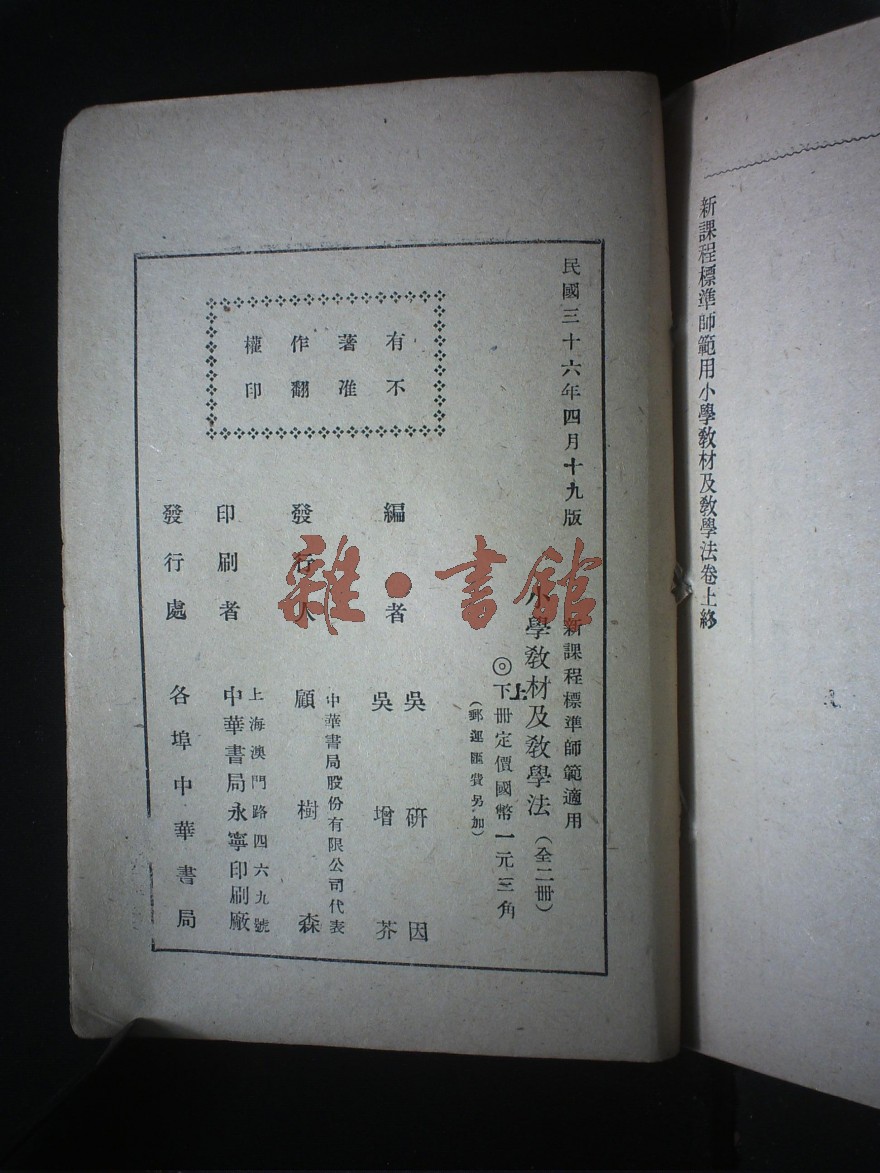 新課程標準師範用小學教材及教學法卷上終
民國三十六年四月十九版
有著作權
不准翻印
新課程標準師範適用
小學教材及教學法（全二冊）
◎上下冊定價國幣一元三角
（郵運匯費另加）
編者
吳研因
吳增芥
發行人
中華書局股份有限公司代表
顧樹森
印刷者
上海澳門路四六九號
中華書局永寧印刷廠
發行處
各埠中華書局
雜·書館